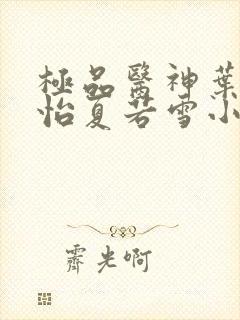 極品醫神葉
怡夏若雪小
霽光啊